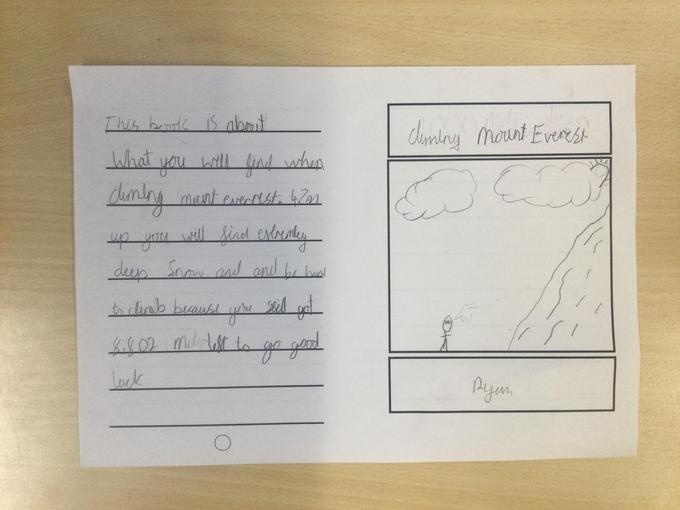 This book is about
What you will find when
climing mount everest. 42m
up you will find extremley
deep Snow and and be hard
to climb because you still got
8.802 left to go good
luck
climing Mount Everest
Ryan